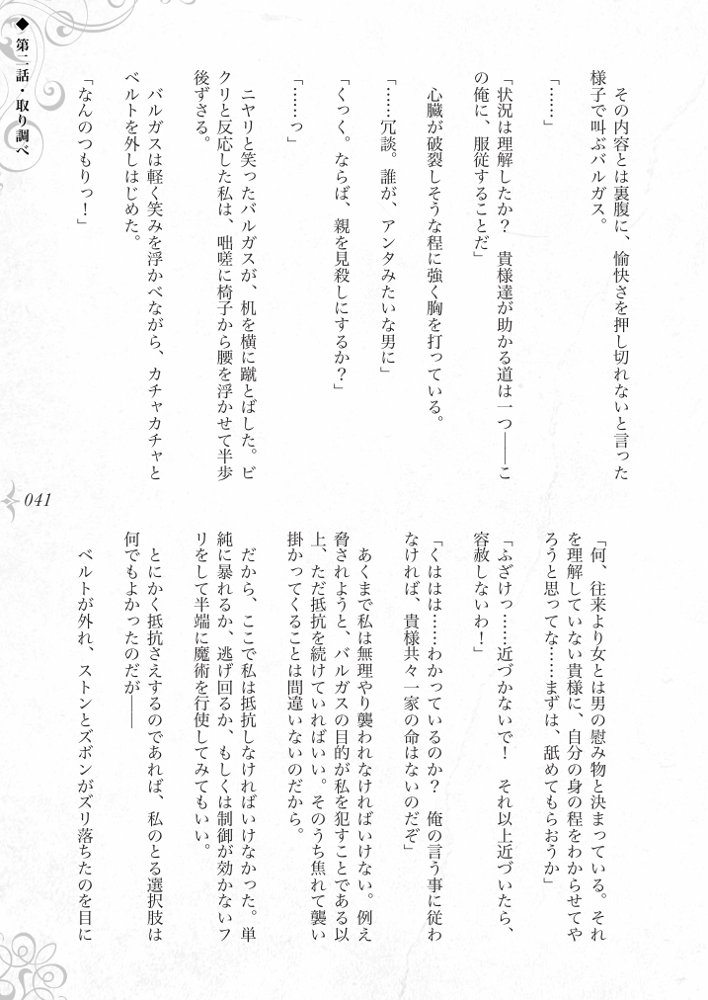 ◆ 第二話・取り調べ
その内容とは裏腹に、愉快さを押し切れないと言った
様子で叫ぶバルガス。
「……」
「状況は理解したか？　貴様達が助かる道は一つ――こ
の俺に、服従することだ」
心臓が破裂しそうな程に強く胸を打っている。
「……冗談。誰が、アンタみたいな男に」
「くっく。ならば、親を見殺しにするか？」
「……っ」
ニヤリと笑ったバルガスが、机を横に蹴とばした。ビ
クリと反応した私は、咄嗟に椅子から腰を浮かせて半歩
後ずさる。
バルガスは軽く笑みを浮かべながら、カチャカチャと
ベルトを外しはじめた。
「なんのつもりっ！」
「何、往来より女とは男の慰み物と決まっている。それ
を理解していない貴様に、自分の身の程をわからせてや
ろうと思ってな……まずは、舐めてもらおうか」
「ふざけっ……近づかないで！　それ以上近づいたら、
容赦しないわ！」
「くははは……わかっているのか？　俺の言う事に従わ
なければ、貴様共々一家の命はないのだぞ」
あくまで私は無理やり襲われなければいけない。例え
脅されようと、バルガスの目的が私を犯すことである以
上、ただ抵抗を続けていればいい。そのうち焦れて襲い
掛かってくることは間違いないのだから。
だから、ここで私は抵抗しなければいけなかった。単
純に暴れるか、逃げ回るか、もしくは制御が効かないフ
リをして半端に魔術を行使してみてもいい。
とにかく抵抗さえするのであれば、私のとる選択肢は
何でもよかったのだが――
ベルトが外れ、ストンとズボンがズリ落ちたのを目に
041